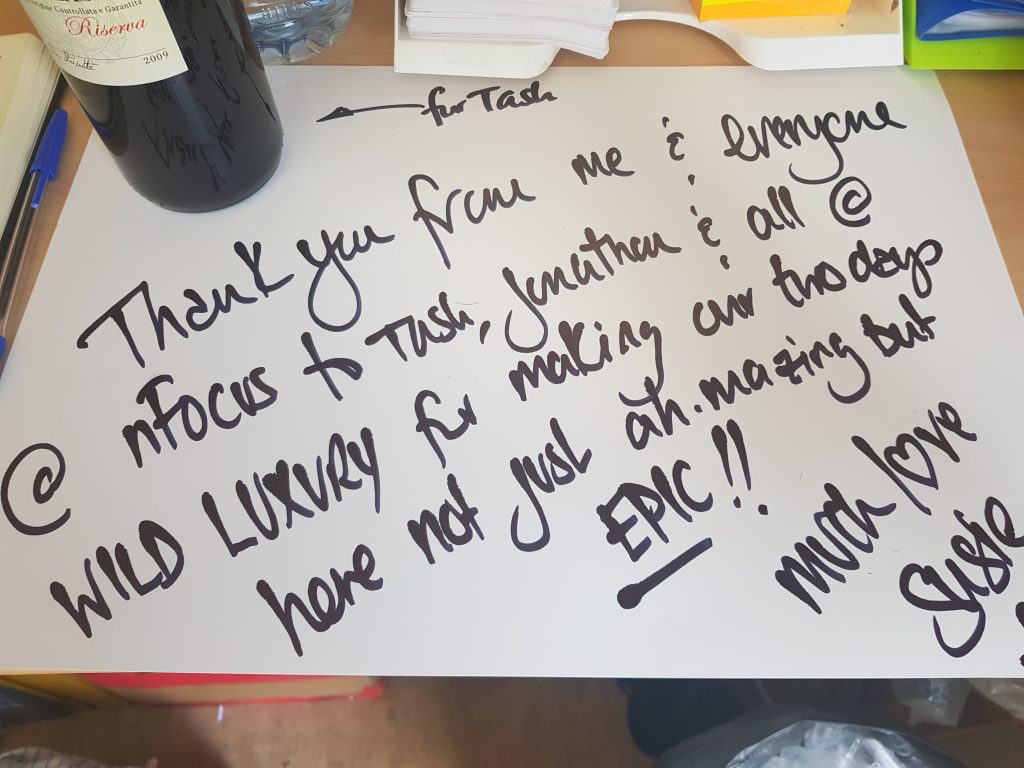 Origine Controllata e Garantita
Riserva
2009
for Tash
Thank you from me & everyone
@ nFocus to Tash, Jonathan & all @
WILD LUXURY for making our two days
here not just ah.mazing but
EPIC!!
much love
Susie